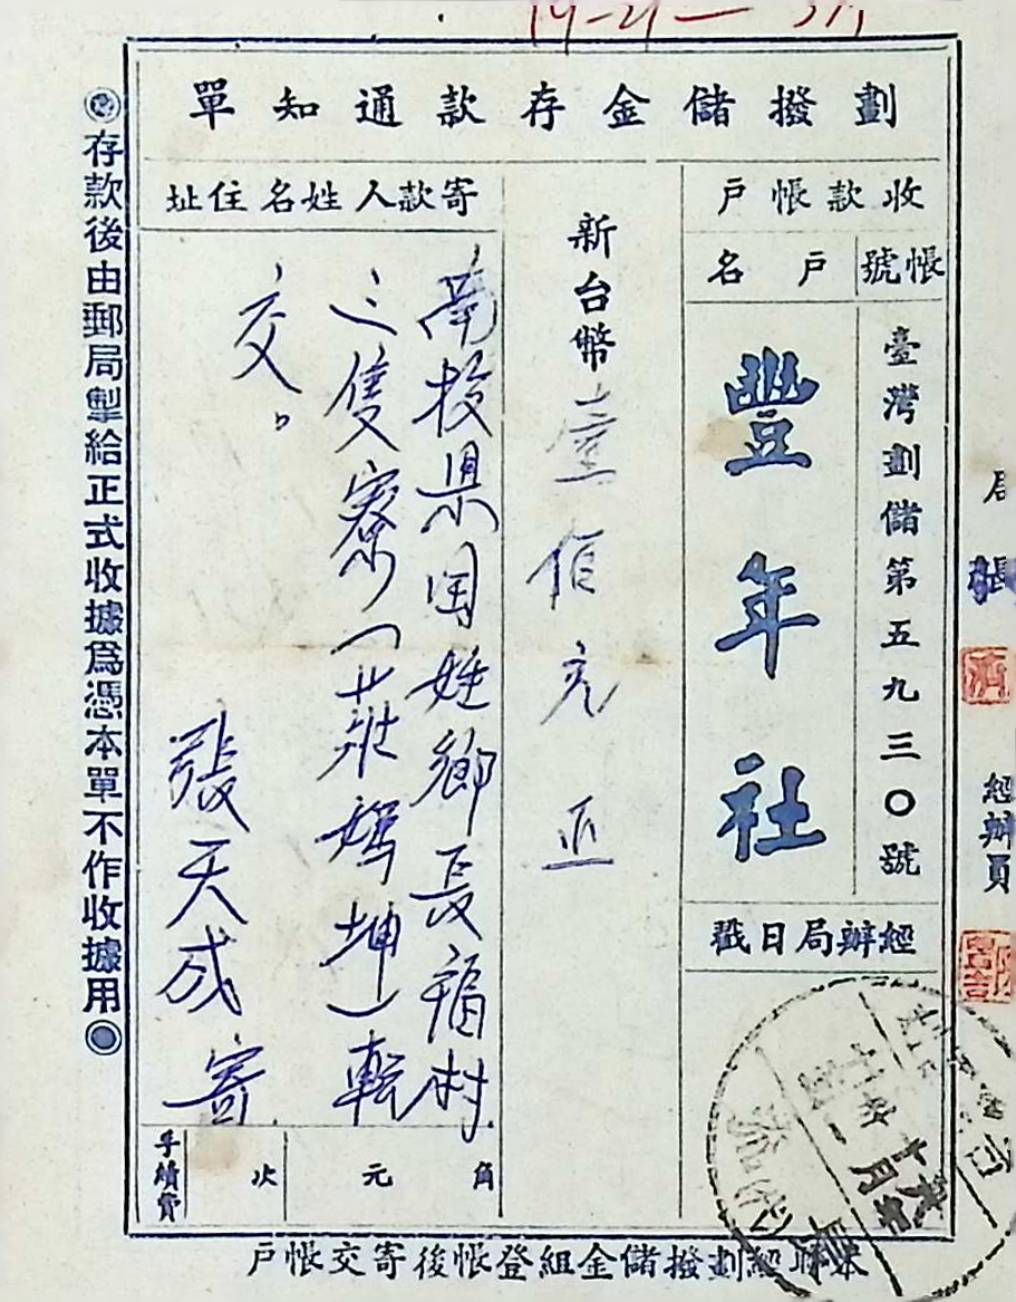 劃撥儲金存款通知單
收款帳戶
帳號
戶名
臺灣劃儲第五九三〇號
豐年社
經辦局日戳
新台幣壹佰元正
寄款人姓名住址
南投県国姓鄉長福村
三隻寮(
坤)転
交。
張天成寄
手續費
次
元
角
◎存款後由郵局掣給正式收據為憑本單不作收據用◎
本聯經劃撥儲金組登帳後寄交帳戶
局長
經辦員